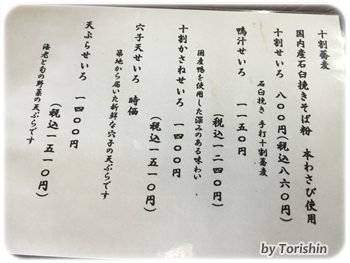 十割蕎麦
国内産石臼挽きそば粉 本わさび使用
十割せいろ 八〇〇円(税込八六〇円)
石臼挽き 手打十割蕎麦
鴨汁せいろ 一一五〇円
(税込一二四〇円)
国産鴨を使用した深みのある味わい
十割かさねせいろ 一四〇〇円
(税込一五一〇円)
穴子天せいろ 時価
築地から届いた新鮮な穴子の天ぷらです
天ぷらせいろ 一四〇〇円
(税込一五一〇円)
海老と旬の野菜の天ぷらです
by Torishin